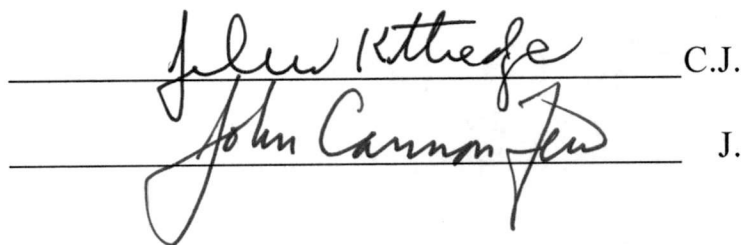 John Kittredge C.J.
John Cannon Few J.